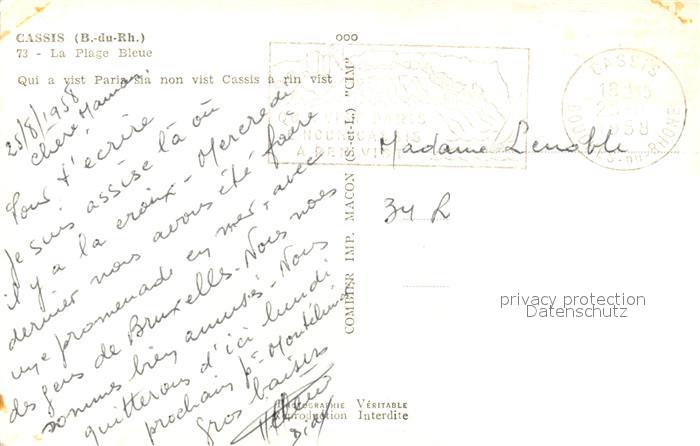 CASSIS (B.-du-Rh.)
73 - La Plage Bleue
Qui a vist Paris sia non vist Cassis a rin vist
25/8/1958
Chère Maman
Pour t'écrire
je suis assise là où
il y a la croix - Mercredi
dernier nous avons été faire
une promenade en mer, avec
des gens de Bruxelles. Nous nous
sommes bien amusés. Nous
quitterons d'ici lundi
prochain pr Montélimar
gros baisers
COMBIER IMP. MACON (S.-et-L.) "CIM"
CASSIS
18H15
1958
BOUCHES-DU-RHONE
PARIS
CASSIS
Madame Lenoble
34 R
privacy protection
Datenschutz
PHOTOGRAPHIE VÉRITABLE
Reproduction Interdite